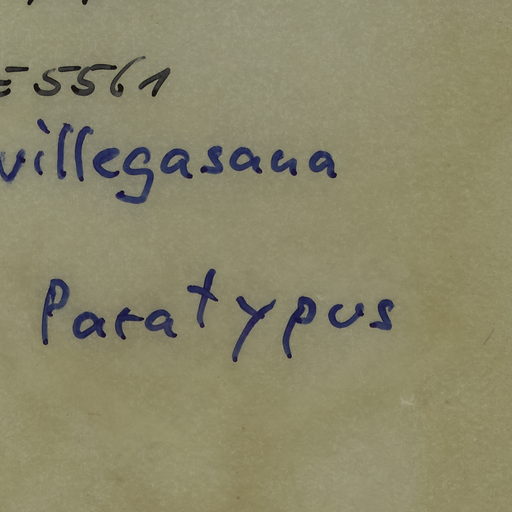 E5561
villegasana
Paratypus